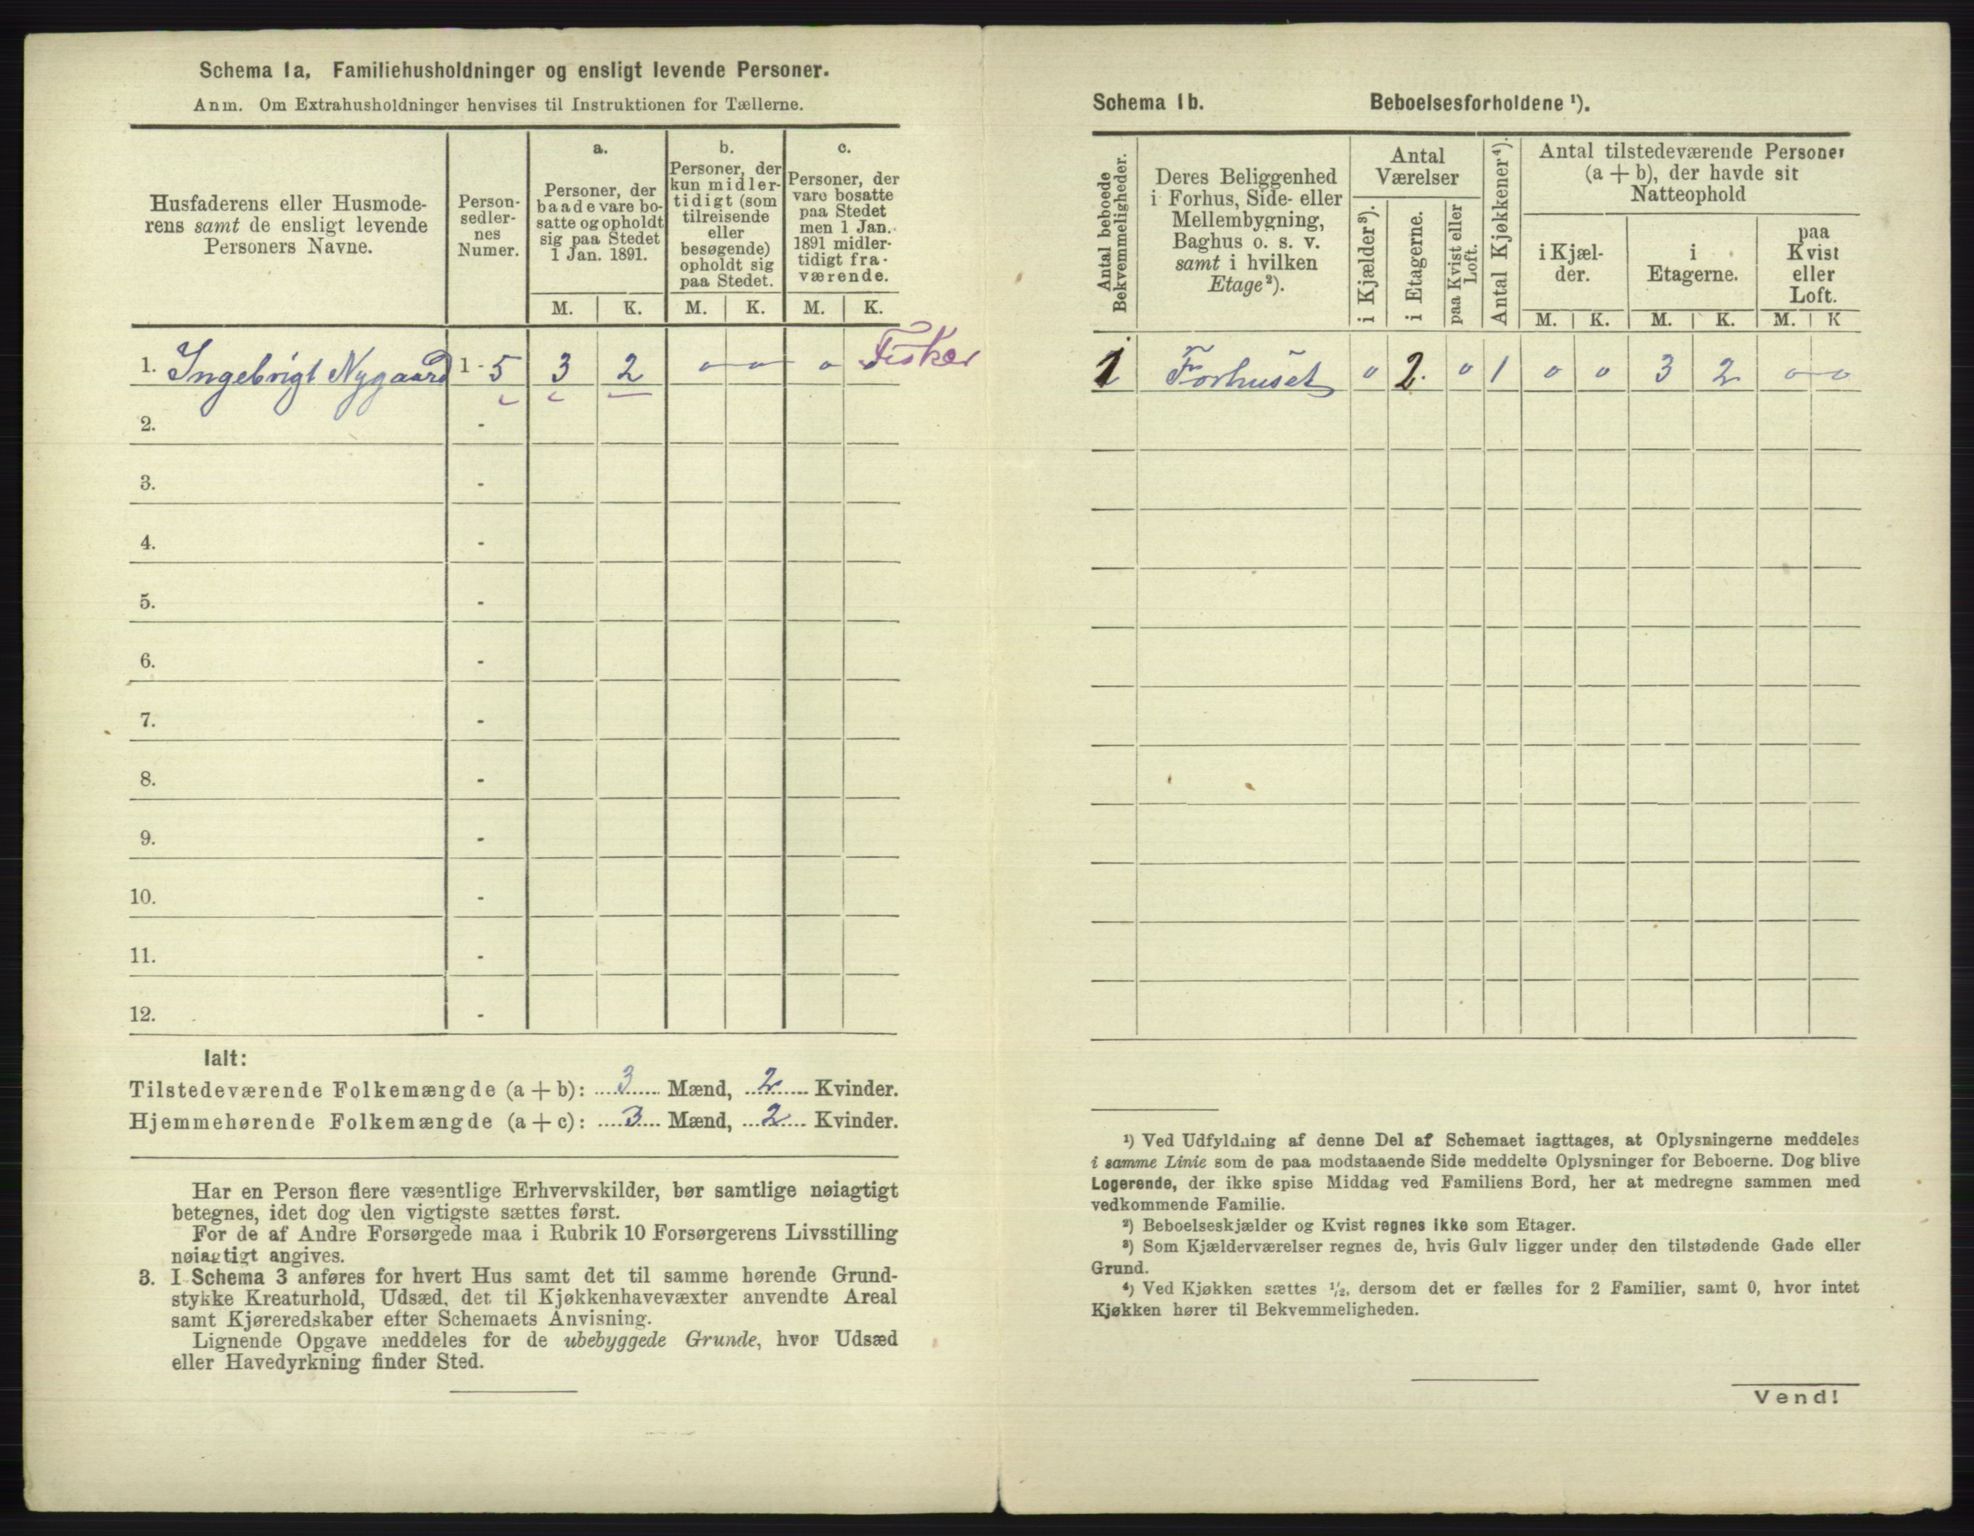 Schema 1a, Familiehusholdninger og ensligt levende Personer.
Anm. Om Extrahusholdninger henvises til Instruktionen for Tællerne.
Husfaderens eller Husmode-
rens samt de ensligt levende
Personers Navne.
Person-
sedler-
nes
Numer.
a.
Personer, der
baade vare bo-
satte og opholdt
sig paa Stedet
1 Jan. 1891.
b.
Personer, der
kun midler-
tidigt (som
tilreisende
eller
besøgende)
opholdt sig
paa Stedet.
c.
Personer, der
vare bosatte
paa Stedet
men 1 Jan.
1891 midler-
tidigt fra-
værende.
M. K. M. K. M. K.
1. Ingebrigt Nygaard 1 - 5 3 2 0 0 0 Fisker
2. -
3. -
4. -
5. -
6. -
7. -
8. -
9. -
10. -
11. -
12. -
Ialt:
Tilstedeværende Folkemængde (a + b): 3 Mænd, 2 Kvinder.
Hjemmehørende Folkemængde (a + c): 3 Mænd, 2 Kvinder.
Har en Person flere væsentlige Erhvervskilder, bør samtlige nøiagtigt
betegnes, idet dog den vigtigste sættes først.
For de af Andre Forsørgede maa i Rubrik 10 Forsørgerens Livsstilling
nøiagtigt angives.
3. I Schema 3 anføres for hvert Hus samt det til samme hørende Grund-
stykke Kreaturhold, Udsæd, det til Kjøkkenhavevæxter anvendte Areal
samt Kjøreredskaber efter Schemaets Anvisning.
Lignende Opgave meddeles for de ubebyggede Grunde, hvor Udsæd
eller Havedyrkning finder Sted.
Schema 1b. Beboelsesforholdene ¹).
Antal beboede
Bekvemmeligheder.
Deres Beliggenhed
i Forhus, Side- eller
Mellembygning,
Baghus o. s. v.
samt i hvilken
Etage²).
Antal
Værelser
i Kjælder³).
i Etagerne.
paa Kvist eller
Loft.
Antal Kjøkkener⁴).
Antal tilstedeværende Personer
(a + b), der havde sit
Natteophold
i Kjæl-
der.
i
Etagerne.
paa
Kvist
eller
Loft.
M. K. M. K. M. K
1 Forhuset 0 2. 0 1 0 0 3 2 0 0
¹) Ved Udfyldning af denne Del af Schemaet iagttages, at Oplysningerne meddeles
i samme Linie som de paa modstaaende Side meddelte Oplysninger for Beboerne. Dog blive
Logerende, der ikke spise Middag ved Familiens Bord, her at medregne sammen med
vedkommende Familie.
²) Beboelseskjælder og Kvist regnes ikke som Etager.
³) Som Kjælderværelser regnes de, hvis Gulv ligger under den tilstødende Gade eller
Grund.
⁴) Ved Kjøkken sættes ½, dersom det er fælles for 2 Familier, samt 0, hvor intet
Kjøkken hører til Bekvemmeligheden.
Vend!